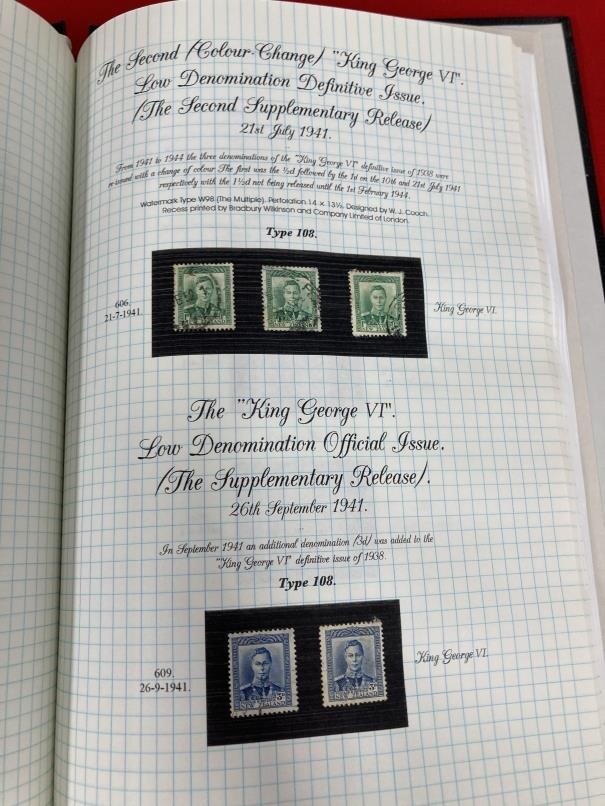 The Second (Colour-Change) "King George VI".
Low Denomination Definitive Issue.
(The Second Supplementary Release)
21st July 1941.
From 1941 to 1944 the three denominations of the "King George VI" definitive issue of 1938 were
re-issued with a change of colour The first was the ½d followed by the 1d on the 10th and 21st July 1941
respectively with the 1½d not being released until the 1st February 1944.
Watermark Type W98 (The Multiple). Perforation 14 x 13½. Designed by W. J. Cooch.
Recess printed by Bradbury Wilkinson and Company Limited of London.
Type 108.
606.
21-7-1941.
King George VI.
NEW ZEALAND
The "King George VI".
Low Denomination Official Issue.
(The Supplementary Release).
26th September 1941.
In September 1941 an additional denomination (3d) was added to the
"King George VI" definitive issue of 1938.
Type 108.
609.
26-9-1941.
King George VI.
3D
NEW ZEALAND
3D
NEW ZEALAND